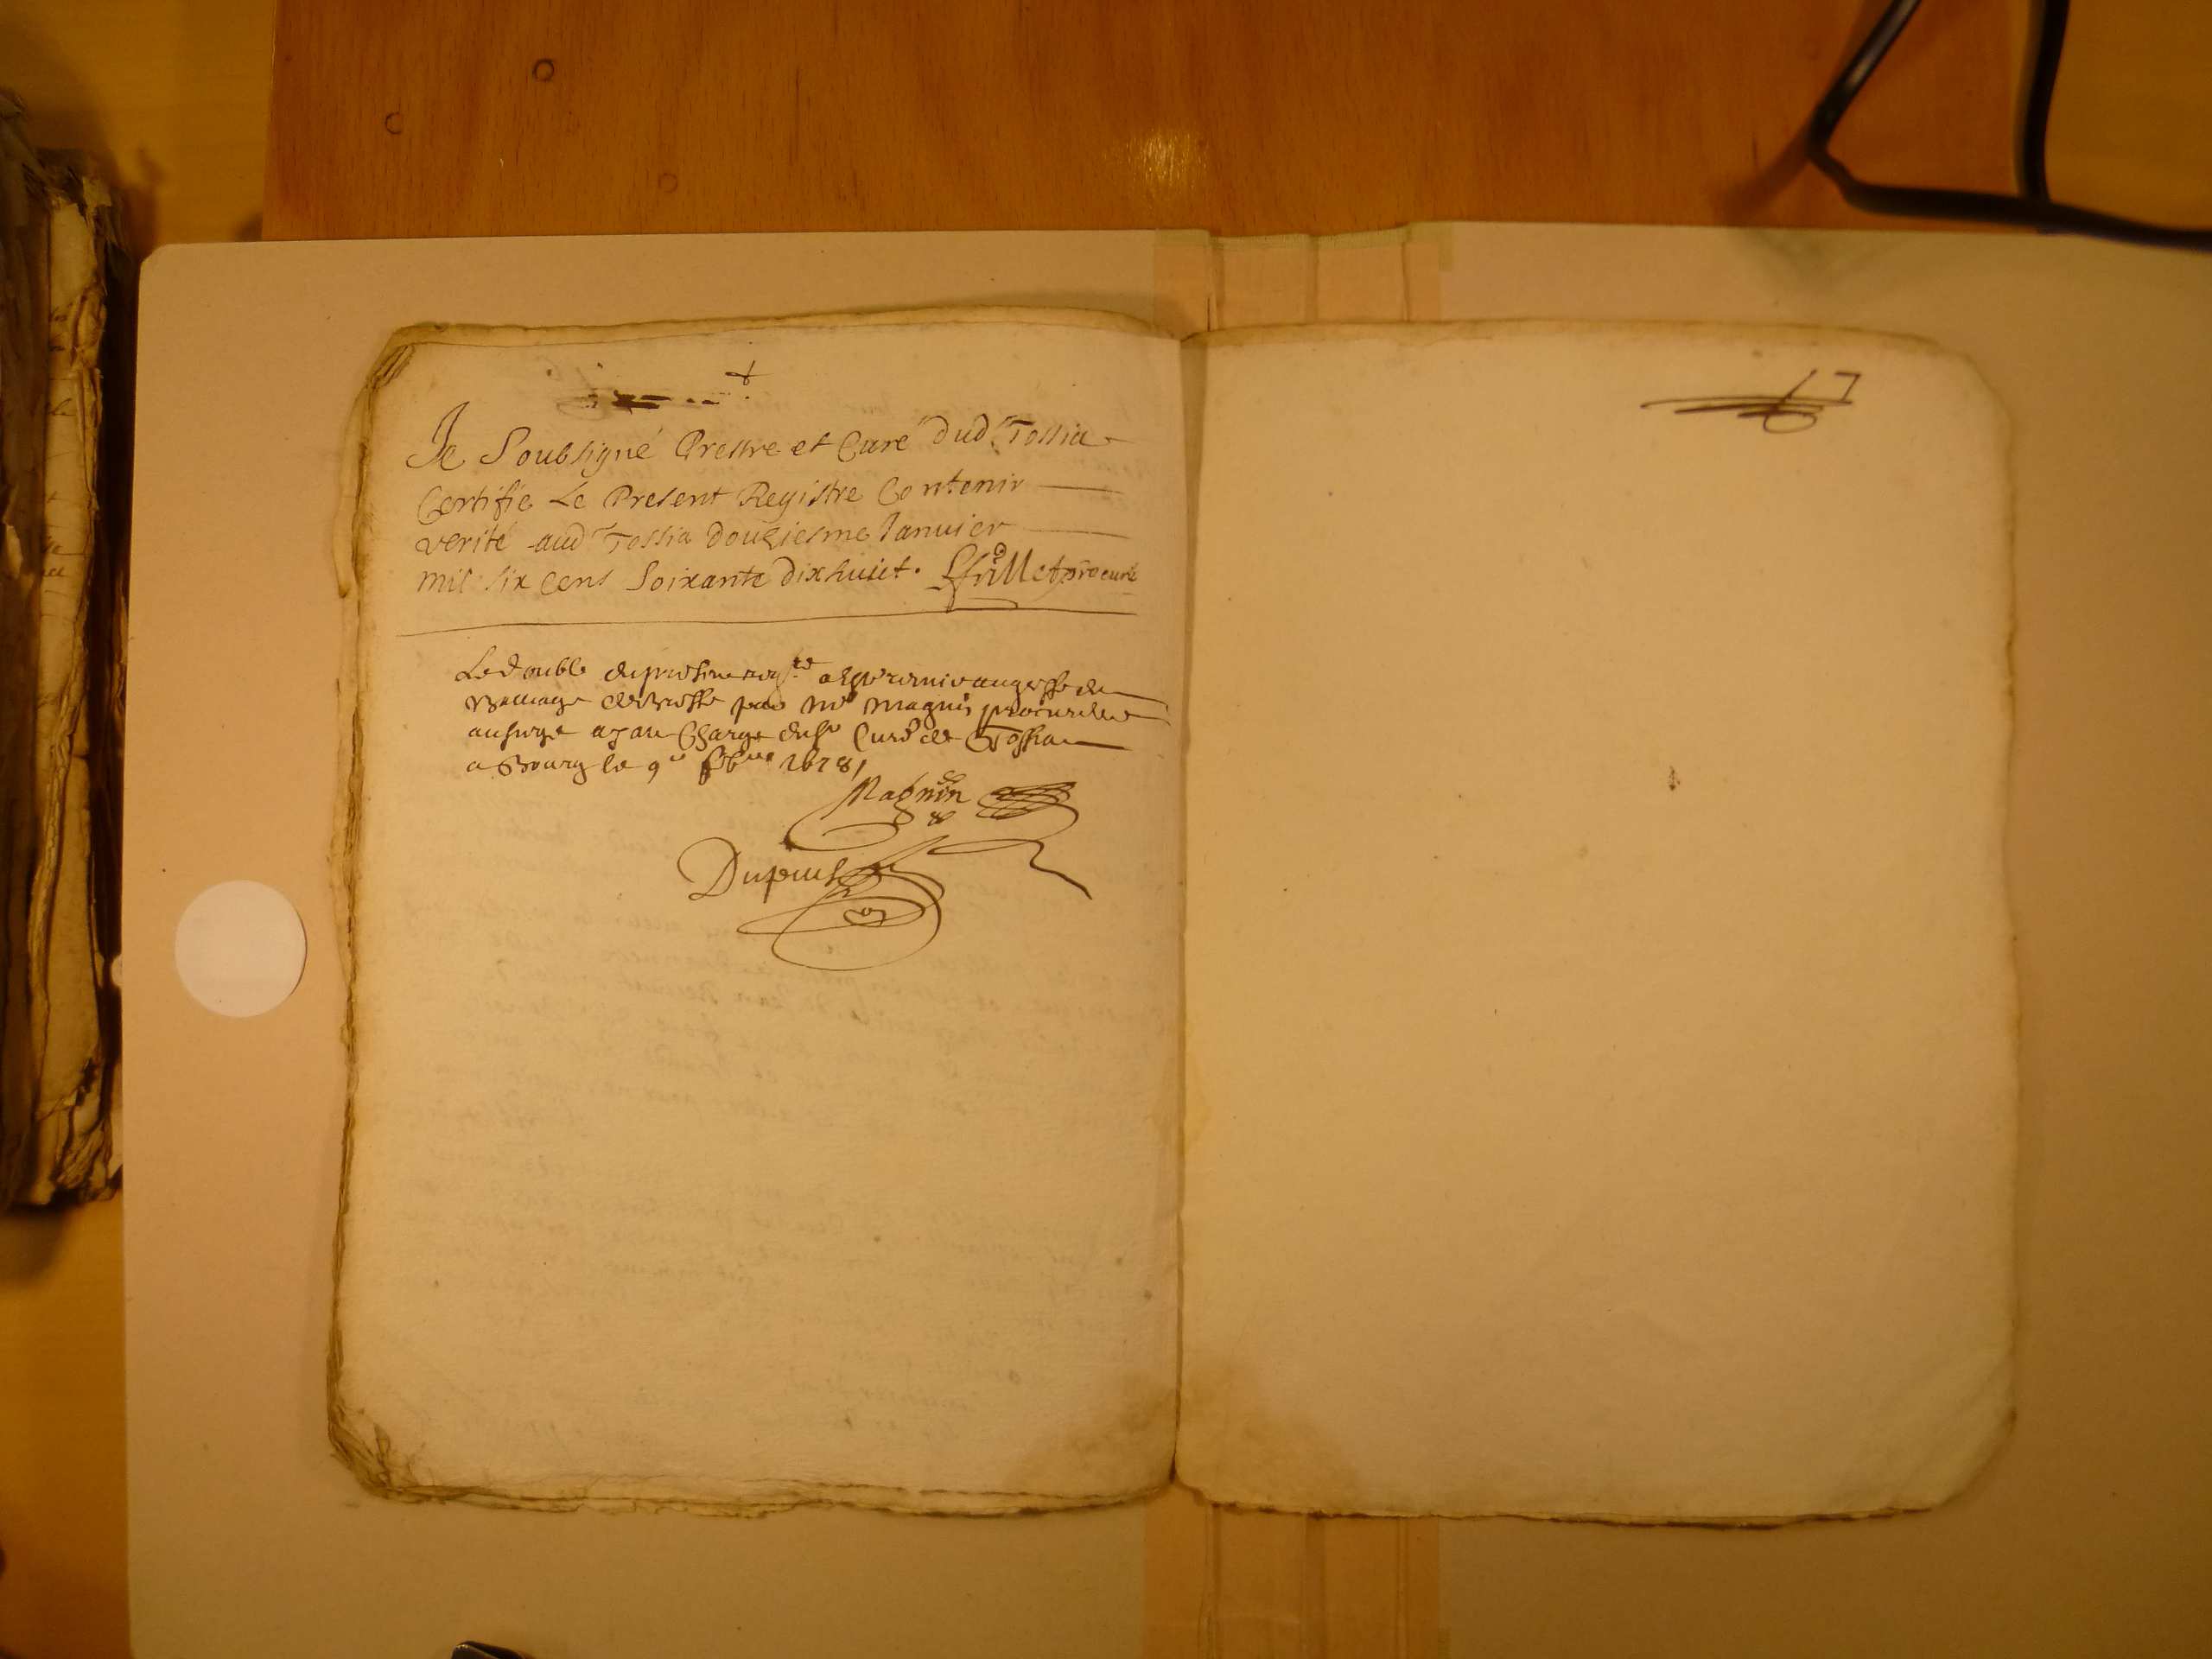 Je Soubsigné Prestre et Curé dud Tossia
Certifie Le Present Registre Contenir
verité aud Tossia Douziesme Januier
mil six cens Soixante dixhuict.
Le double du present regre a esté remis au greffe du
Balliage de Bresse par Me Magnin procureur
au siege ayan Charge du sr Curé de Tossia
a Bourg le 9e 1678
Magnin
Dupuis
17